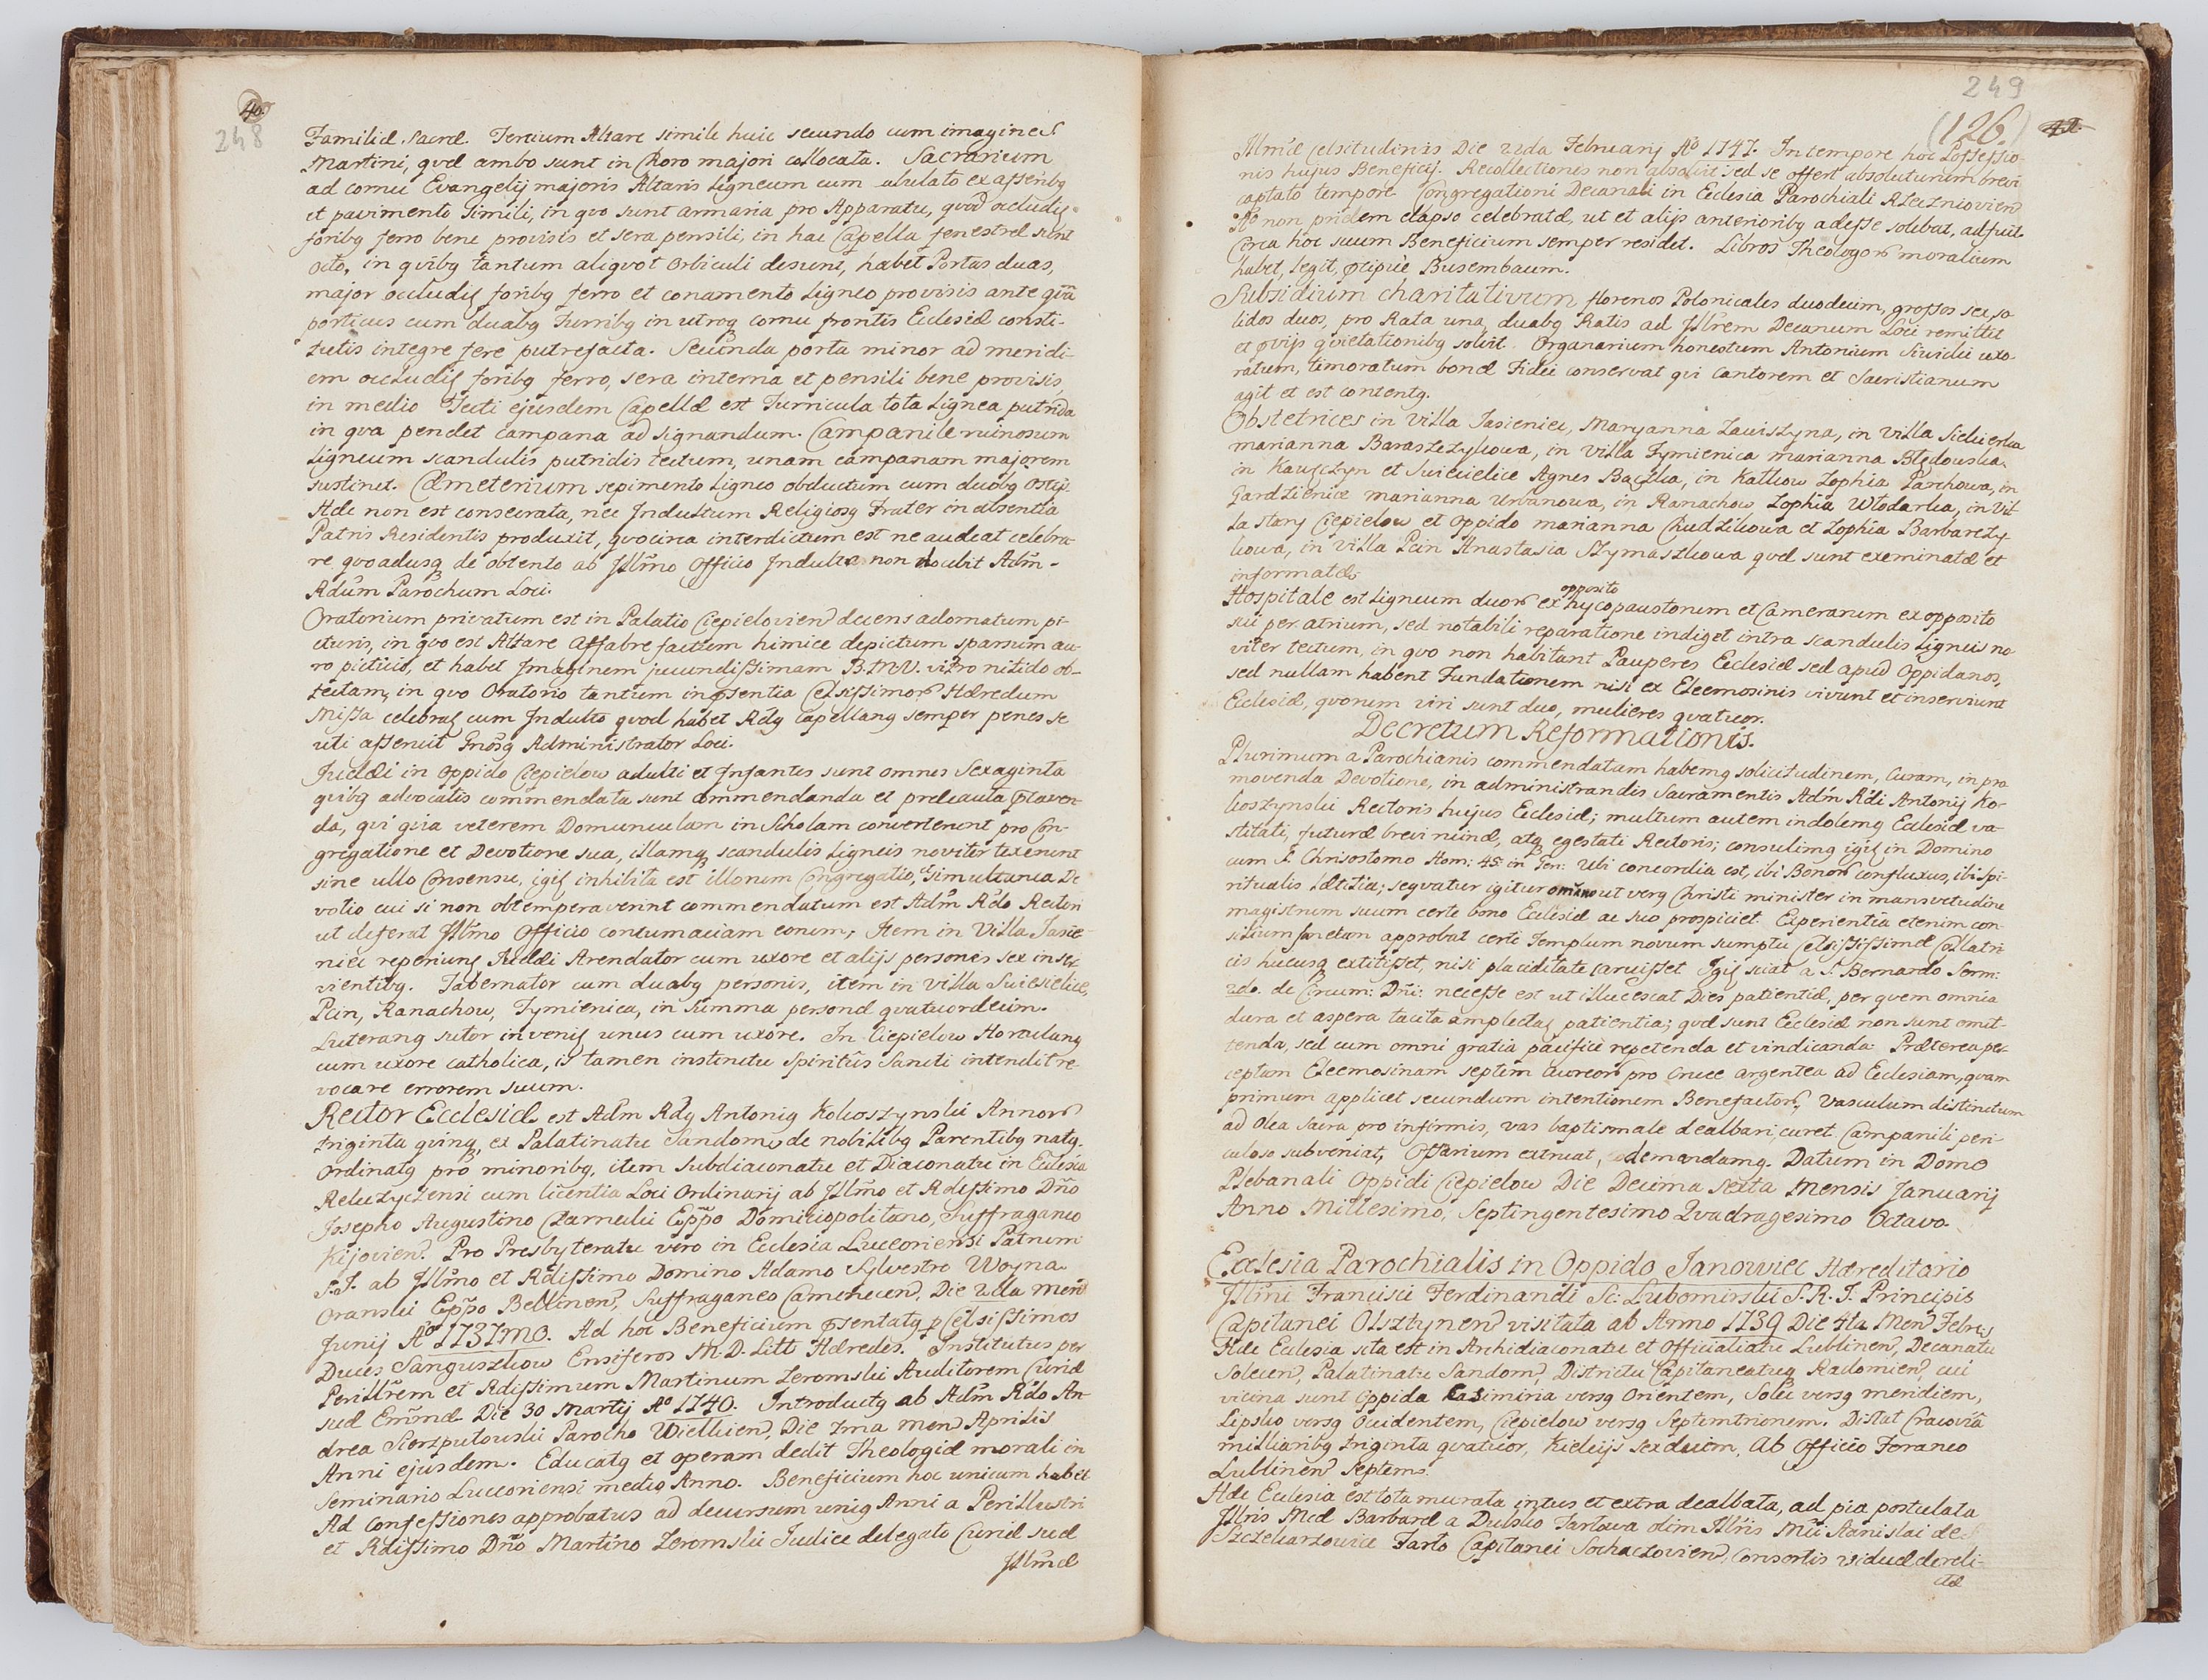 40.
248
Familiæ Sacræ. Tertium Altare simile huic secundo cum imagine S.
Martini, qvæ ambo sunt in Choro majori collocata. Sacrarium
ad cornu Evangelij majoris Altaris Ligneum cum tabulato ex asseribꝗ
et pavimento simili, in qvo sunt armaria pro Apparatu, qvod occluditʒ
foribꝗ ferro bene provisis et sera pensili, in hac Capella fenestræ sunt
octo, in qvibꝗ tantum aliqvot orbiculi desunt, habet Portas duas,
major occluditʒ foribꝗ ferro et conamento Ligneo provisis ante qvã
porticus cum duabꝗ Turribꝗ in utroqꝫ cornu frontis Ecclesiæ consti-
tutis integre fere putrefacta. Secunda porta minor ad meridi-
em occluditʒ foribꝗ ferro, sera interna et pensili bene provisis,
in medio Tecti ejusdem Capellæ est Turricula tota Lignea putrida
in qva pendet campana ad signandum. Campanile ruinosum
Ligneum scandulis putridis tectum, unam campanam majorem
sustinet. Cæmeterium sepimento Ligneo obductum cum duobꝗ ostijs.
Hæc non est consecrata, nec Indultum Religiosꝗ Frater in absentia
Patris Residentis produxit, qvocirca interdictum est ne audeat celebra-
re qvoadusqꝫ de obtento ab Illm̃o Officio Indulto non docebit Adm̃-
Rdum Parochum Loci.
Oratorium privatum est in Palatio Ciepielovien̄ decens adornatum pi-
cturis, in qvo est Altare affabre factum himice depictum sparsum au-
ro picticio, et habet Imaginem jucundissimam B.M.V. vitro nitido ob-
tectam, in qvo Oratorio tantum in pr̃sentia Celsissimoꝝ Hæredum
Missa celebratʒ cum Indulto qvod habet Rdꝗ Capellanꝗ semper penes se
uti asseruit Gnõsꝗ Administrator Loci.
Judæi in Oppido Ciepielow adulti et Infantes sunt omnes Sexaginta
qvibꝗ advocatis commendata sunt commendanda et precauta p̃caven-
da, qvi qvia veterem Domunculam in Scholam converterunt pro Con-
gregatione et Devotione sua, illamqꝫ scandulis Ligneis noviter texerunt
sine ullo Consensu, igitʒ inhibita est illorum Congregatio, et simultanea De
votio cui si non obtemperaverint commendatum est Adm̃ Rdo Rectori
ut deferat Illm̃o Officio contumaciam eorum; Item in Villa Jasie-
niec reperiunʒ Judæi Arendator cum uxore et alijs persones sex inser-
vientibꝗ. Tabernator cum duabꝗ personis, item in villa Swiesielice,
Pcin, Kanachow, Tymienica, in Summa personæ qvatuordecim.
Luteranꝗ sutor invenitʒ unus cum uxore. In Ciepielow Horodanꝗ
cum uxore catholica, is tamen instinctu Spiritus Sancti intendit re-
vocare errorem suum.
Rector Ecclesiæ est Adm̃ Rdꝗ Antoniꝗ Kokoszynski Annoꝝ
triginta qvinqꝫ, ex Palatinatu Sandom̄ de nobilibꝗ Parentibꝗ natꝗ.
Ordinatꝗ pro minoribꝗ, item Subdiaconatu et Diaconatu in Ecclesia
cum licentia Loci Ordinarij ab Illm̃o et Rdissimo Dño
Josepho Augustino Czarnecki Epp̃o Domiciopolitano, Suffraganeo
Kijovien̄. Pro Presbyteratu vero in Ecclesia Luceoriensi Patrum
S.J. ab Illm̃o et Rdissimo Domino Adamo Sylvestro Woyna
Oranski Epp̃o Bellinen̄, Suffraganeo Camenecen̄, Die 2da Men̄
Junij Aõ 1737mo. Ad hoc Beneficium p̃sentatꝗ p Celsissimos
Duces Sanguszkow Ensiferos M.D. Litt Hæredes. Institutus per
Perillr̃em et Rdissimum Martinum Zeromski Auditorem Curiæ
suæ Em̃næ Die 30 Martij Aõ 1740. Introductꝗ ab Adm̃ Rdo An-
drea Sierzputowski Parocho Wielkien̄, Die 7ma Men̄ Aprilis
Anni ejusdem. Educatꝗ et operam dedit Theologiæ morali in
Seminario Luceoriensi medio Anno. Beneficium hoc unicum habet
Ad Confessiones approbatus ad decursum uniꝗ Anni a Perillustri
et Rdissimo Dño Martino Zeromski Judice delegato Curiæ suæ
Illm̃æ
249
(126.) 41.
Illm̃æ Celsitudinis Die 22da Februarij Aõ 1747. In tempore hoc Possessio-
nis hujus Beneficij. Recollectiones non absolvit sed se offert absoluturum brevi
captato tempore. Congregationi Decanali in Ecclesia Parochiali Rzeczniovien̄
Aõ non pridem elapso celebratæ, ut et alijs anterioribꝗ adesse solebat, adfuit.
Circa hoc suum Beneficium semper residet. Libros Theologoꝝ moralium
habet, legit, p̃cipue Busembaum.
Subsidium charitativum florenos Polonicales duodecim, grossos sex, so-
lidos duos, pro Rata una, duabꝗ Ratis ad Illr̃em Decanum Loci remittit
et p̃vijs qvietationibꝗ solvit. Organarium honestum Antonium Siwicki uxo-
ratum, timoratum bonæ Fidei conservat qvi Cantorem et Sacristianum
agit et est contentꝗ.
Obstetrices in Villa Jasieniec, Maryanna Zawiszyna, in Villa Siekierka
marianna Baraszczykowa, in Villa Tymienica marianna Błędowska,
in Kawęczyn et Swiesielice Agnes Bączka, in Kałkow Zophia Parchowa, in
Gardzienice marianna Urbanowa, in Kanachow Zophia Włodarka, in Vil-
la Stary Ciepielow et Oppido marianna Chudzikowa et Zophia Barbarczy-
kowa, in villa Pcin Anastasia Szymaszkowa qvæ sunt exeminatæ et
informatæ.
Hospitale est Ligneum duoꝝ ex opposito hypocaustorum et Camerarum ex opposito
sui per atrium, sed notabili reparatione indiget intra scandulis Ligneis no-
viter tectum, in qvo non habitant Pauperes Ecclesiæ sed apud Oppidanos,
sed nullam habent Fundationem nisi ex Eleemosinis vivunt et inserviunt
Ecclesiæ, qvorum viri sunt duo, mulieres qvatuor.
Decretum Reformationis.
Plurimum a Parochianis commendatam habemꝗ solicitudinem, Curam, in pro
movenda Devotione, in administrandis Sacramentis Adm̃ Rdi Antonij Ko-
koszynski Rectoris hujus Ecclesiæ; multum autem indolemꝗ Ecclesiæ va-
stitati, futuræ brevi ruinæ, atqꝫ egestati Rectoris; consulimꝗ igitʒ in Domino
cum S. Chrisostomo Hom: 45 in Gen: Ubi concordia est, ibi Bonoꝝ confluxus, ibi spi-
ritualis Lætitia; seqvatur igitur omnino ut verꝗ Christi minister in mansvetudine
magistrum suum certe bono Ecclesiæ ac suo prospiciet. Experientia etenim con-
silium sanctum approbat certe Templum novum sumptu Celsissimæ Collatri-
cis hucusqꝫ extitisset, nisi placiditate caruisset Igitʒ sciat a S. Bernardo Serm:
2do. de Circum: Dñi: necesse est ut illucescat Dies patientiæ, per qvem omnia
dura et aspera tacita amplectaʒ patientia; qvæ sunt Ecclesiæ non sunt omit-
tenda, sed cum omni gratia pacifice repetenda et vindicanda. Præterea per-
ceptam Eleemosinam septem aureoꝝ pro Cruce argentea ad Ecclesiam, qvam
primum applicet secundum intentionem Benefactoꝝ, Vasculum distinctum
ad Olea Sacra pro infirmis, vas baptismale dealbari, curet. Campanili peri-
culoso subveniat, Ossarium extruat, demandamꝗ. Datum in Domo
Plebanali Oppidi Ciepielow Die Decima Sexta Mensis Januarij
Anno Millesimo, Septingentesimo Qvadragesimo Octavo.
Ecclesia Parochialis in Oppido Janowiec Hæreditario
Illm̃i Francisci Ferdinandi Sc: Lubomirski S.R.I. Principis
Capitanei Olsztynen̄ visitata ab Anno 1739 Die 4ta Men̄ Febris
Hæc Ecclesia sita est in Archidiaconatu et Officialiatu Lublinen̄, Decanatu
Solecen̄, Palatinatu Sandom̄, Districtu Capitaneatuqꝫ Radomien̄, cui
vicina sunt Oppida Casimiria versꝗ Orientem, Solec versꝗ meridiem,
Lipsko versꝗ Occidentem, Ciepielow versꝗ Septemtrionem. Distat Cracoviã
milliaribꝗ triginta qvatuor, Kielcijs sexdecim, Ab Officio Foraneo
Lublinen̄ Septem.
Hæc Ecclesia est tota murata intus et extra dealbata, ad pia postulata
Illris Mcæ Barbaræ a Dulsko Tarlowa olim Illris Mci Stanislai de
Szczekarzowice Tarlo Capitanei Sochaczovien̄, Consortis viduæ dereli-
ctæ